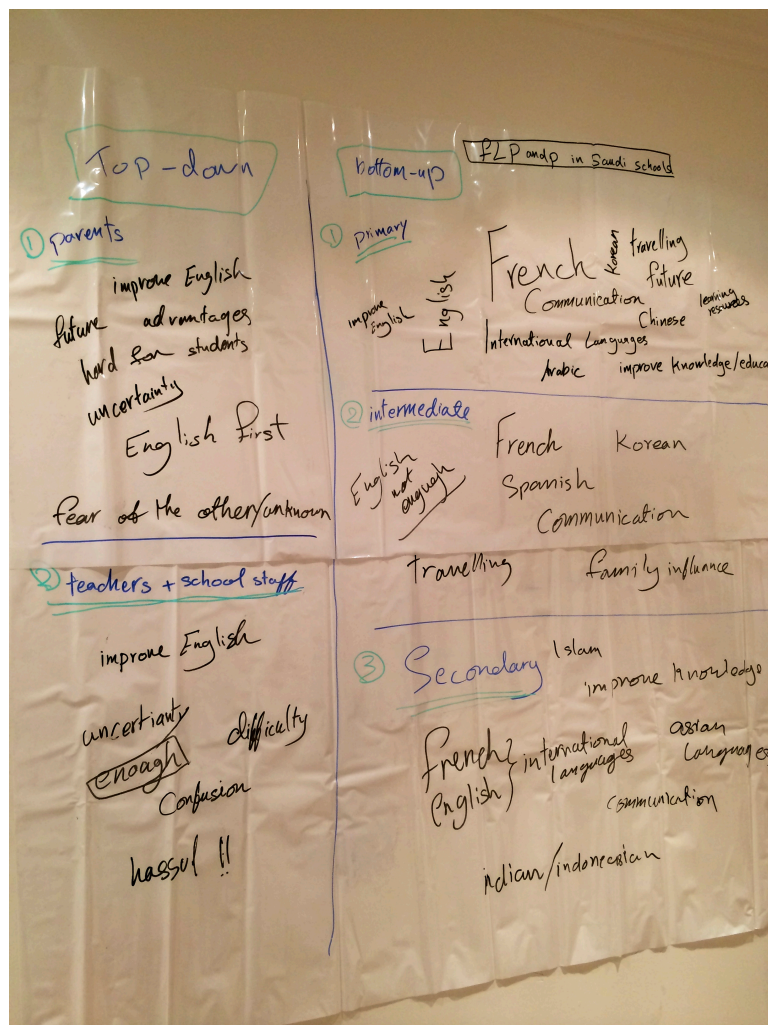 Top-down
① parents
improve English
future advantages
hard for students
uncertainty
English First
fear of the other/unknown
② teachers + school staff
improve English
uncertianty
difficulty
enough
Confusion
hassul !!
bottom-up
FLP and p in Saudi schools
① primary
improve
English
English
French
Korean
travelling
future
Communication
Chinese
learning
resources
International Languages
Arabic
improve knowledge/educa
② intermediate
English
not
enough
French
Korean
Spanish
Communication
travelling
family influence
③ Secondary
Islam
improve knowledge
French
English
international
languages
asian
Languages
communication
indian/indonecsian